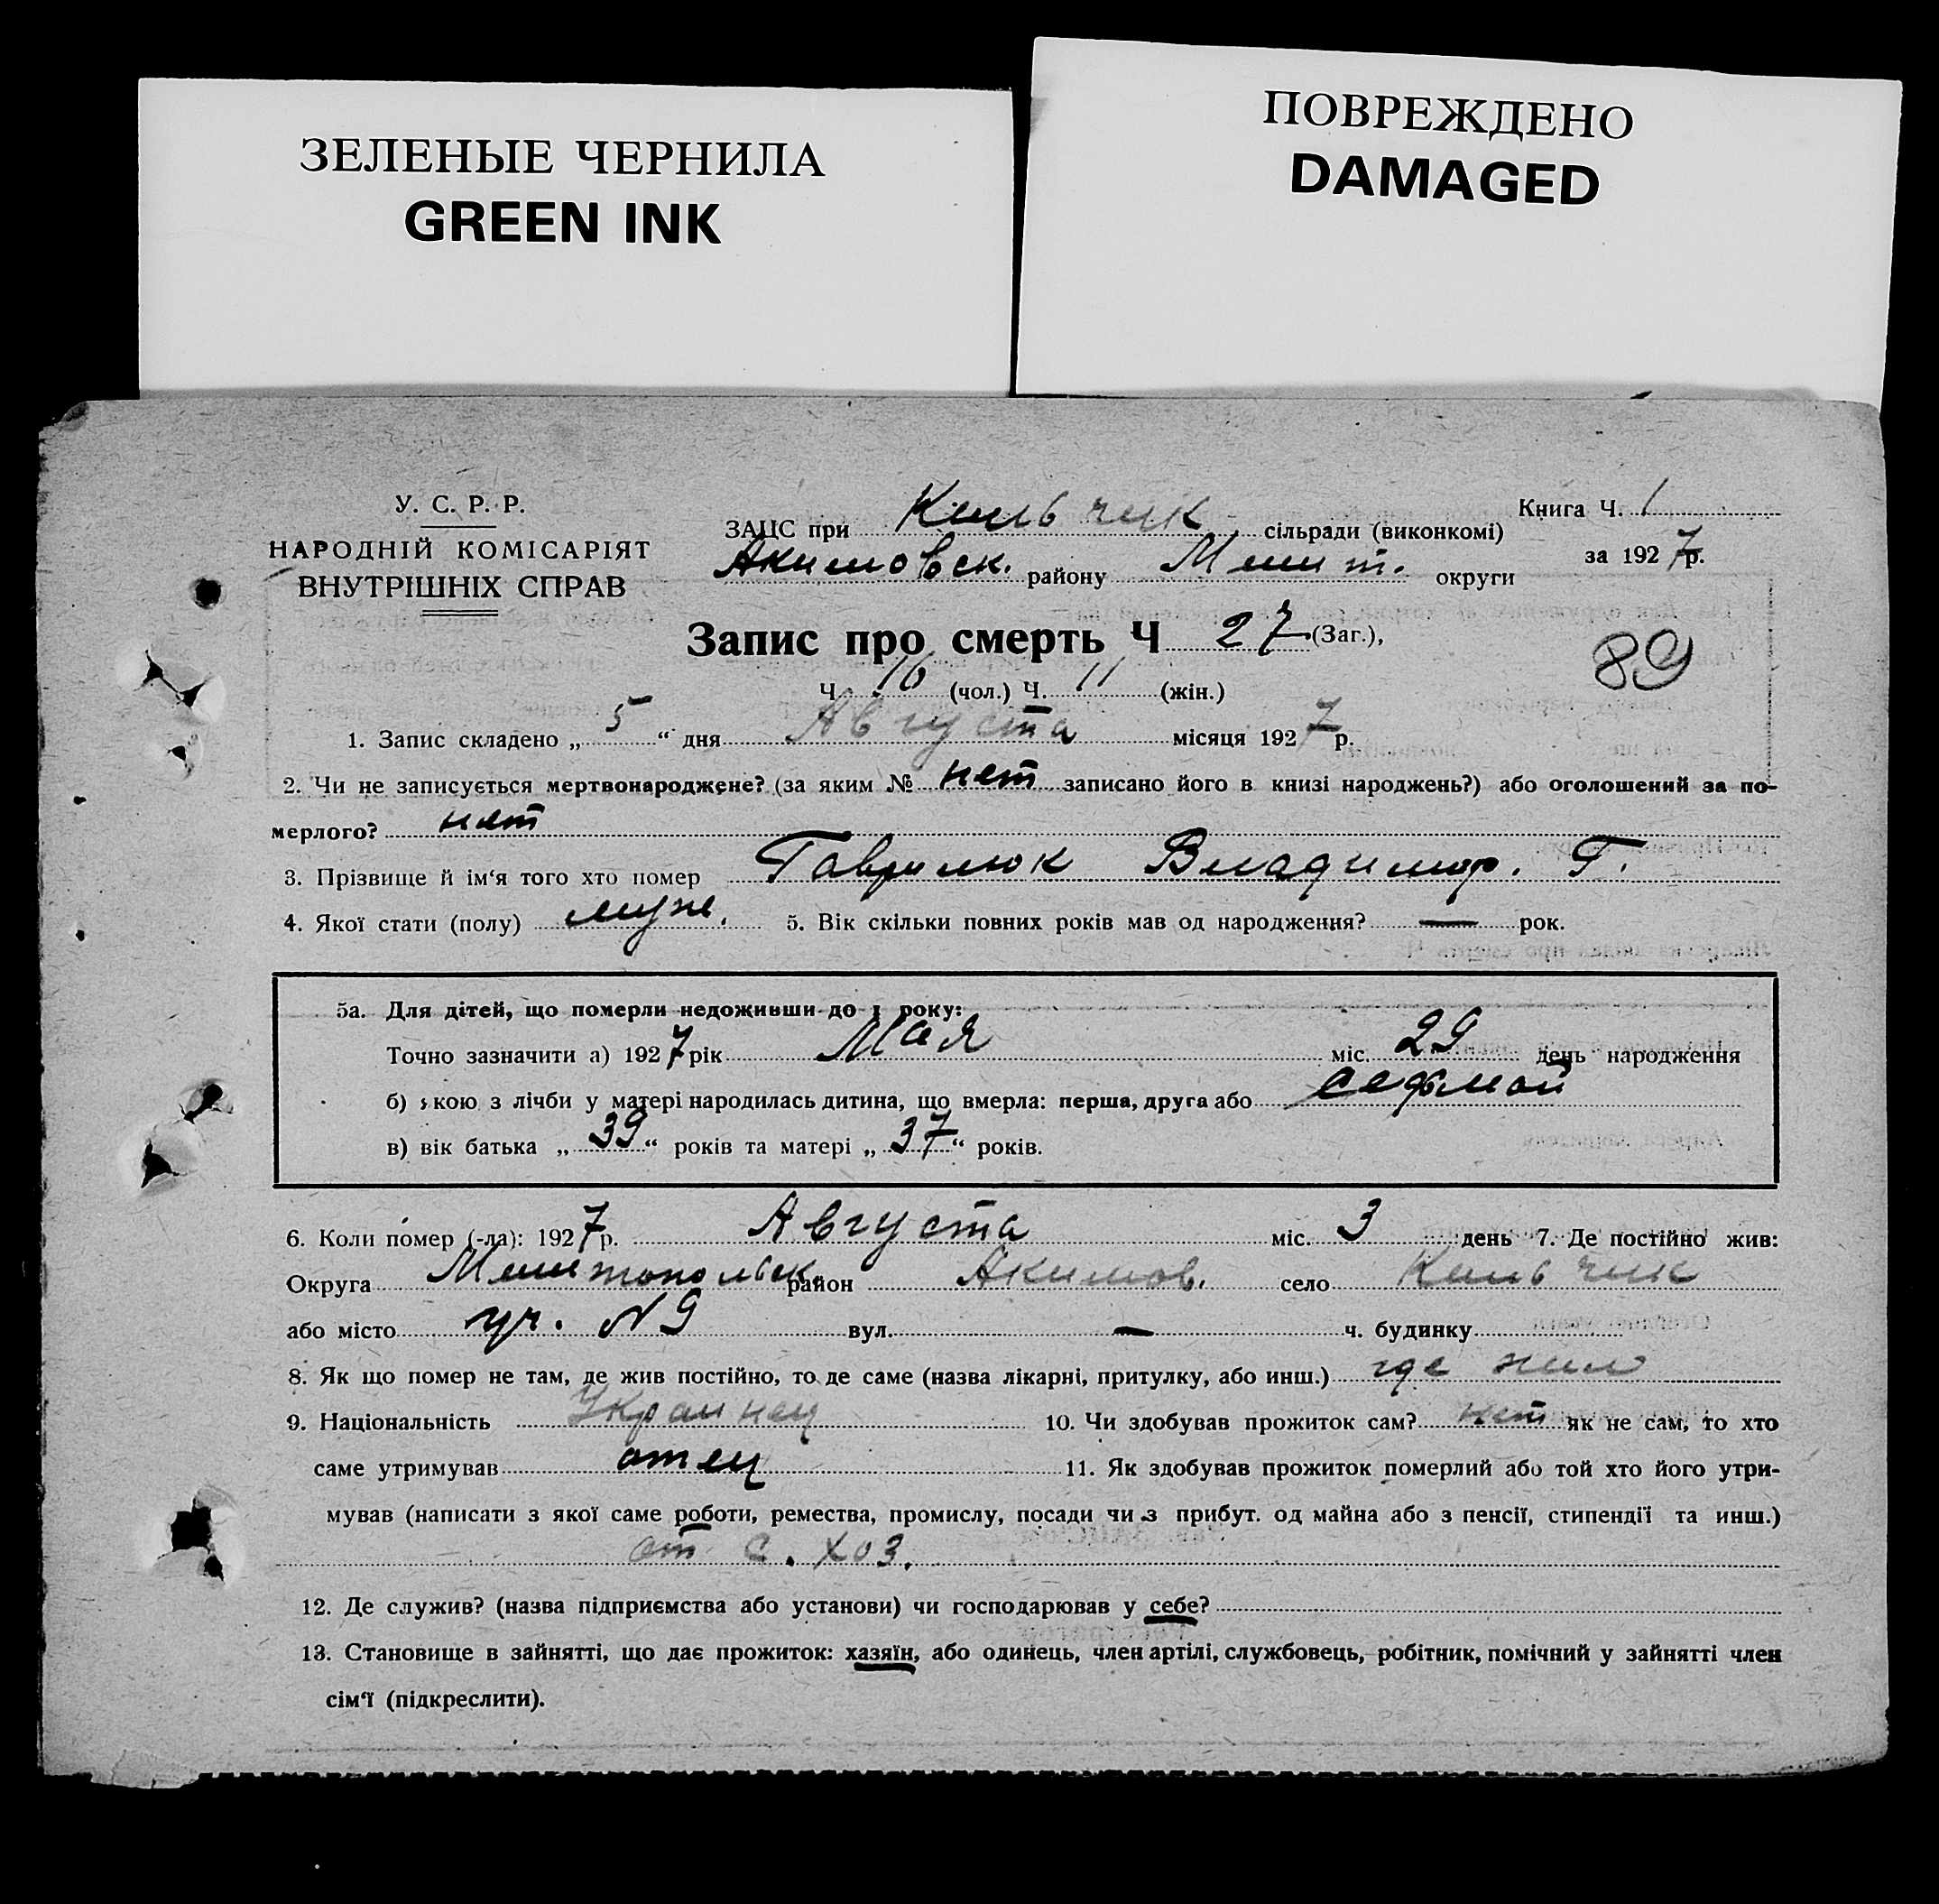 ЗЕЛЕНЫЕ ЧЕРНИЛА
GREEN INK
ПОВРЕЖДЕНО
DAMAGED
У. С. Р. Р.
НАРОДНІЙ КОМІСАРІЯТ
ВНУТРІШНІХ СПРАВ
Книга Ч. 1
за 1927 р.
ЗАЦС при Кильчик сільради (виконкомі)
Акимовск. району Мелит. округи
Запис про смерть Ч 27 (Заг.),
89
Ч 16 (чол.) Ч. 11 (жін.)
1. Запис складено „ 5 “ дня Августа місяця 1927 р.
2. Чи не записується мертвонароджене? (за яким № нет записано його в книзі народжень?) або оголошений за по-
мерлого? нет
3. Прізвище й ім‘я того хто помер Гаврилюк Владимир. Г.
4. Якої стати (полу) муж. 5. Вік скільки повних років мав од народження? — рок.
5а. Для дітей, що померли недоживши до 1 року:
Точно зазначити а) 1927 рік Мая міс. 29 день народження
б) якою з лічби у матері народилась дитина, що вмерла: перша, друга або седьмой
в) вік батька „ 39 “ років та матері „ 37 “ років.
6. Коли помер (-ла): 1927 р. Августа міс. 3 день 7. Де постійно жив:
Округа Мелитопольск. район Акимов. село Кильчик
або місто уч. N 9 вул. — ч. будинку
8. Як що помер не там, де жив постійно, то де саме (назва лікарні, притулку, або инш.) где жил
9. Національність Украинец 10. Чи здобував прожиток сам? нет як не сам, то хто
саме утримував отец 11. Як здобував прожиток померлий або той хто його утри-
мував (написати з якої саме роботи, ремества, промислу, посади чи з прибут. од майна або з пенсії, стипендії та инш.)
от с. хоз.
12. Де служив? (назва підприємства або установи) чи господарював у себе?
13. Становище в зайнятті, що дає прожиток: хазяїн, або одинець, член артілі, службовець, робітник, помічний у зайнятті член
сім‘ї (підкреслити).